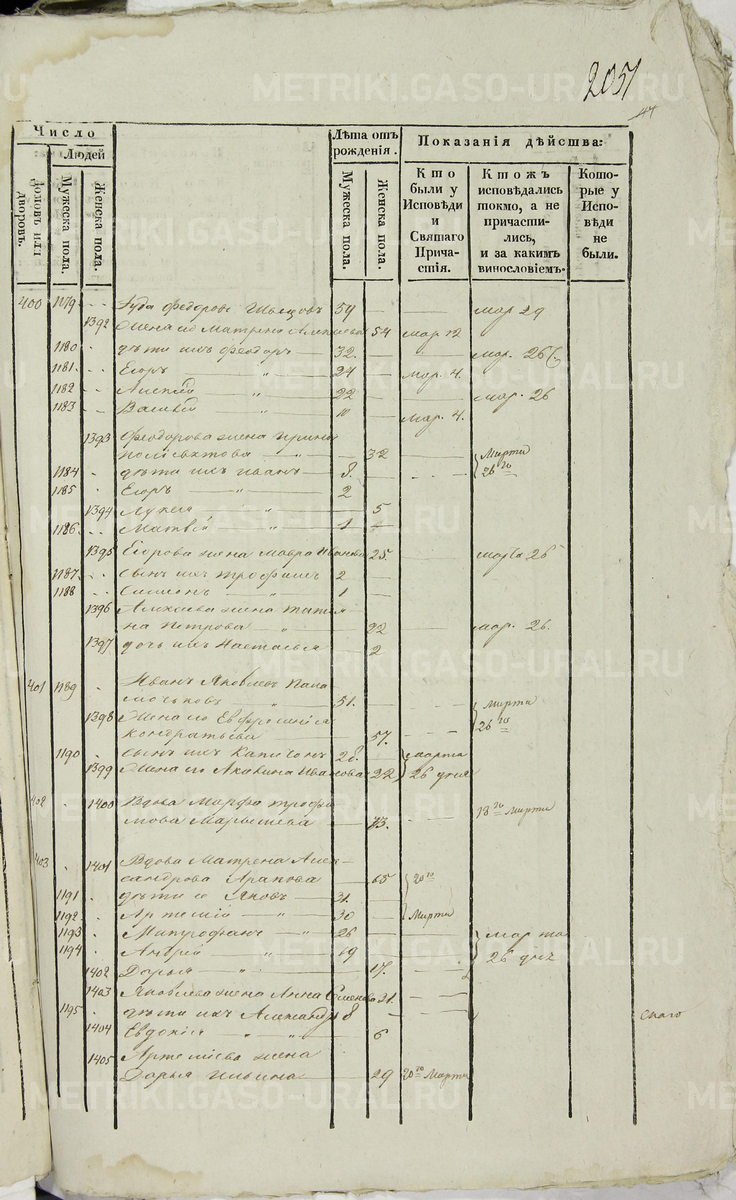 2051
47
Число
Людей
Домовъ или дворовъ.
Мужеска пола.
Женска пола.
Лѣта отъ рожденія.
Мужеска пола.
Женска пола.
Показанія дѣйства:
Кто были у Исповѣди и Святаго Причастія.
Ктожъ исповѣдались токмо, а не причастились, и за какимъ винословіемъ.
Которые у Исповѣди не были.
400 1179 Ѳедоровъ 59 мар 29
1392 Жена его Матрена Алексѣева 54 мар 12
1180 дѣти ихъ Феодоръ 32. мар. 26
1181 Егоръ " 24 мар. 4.
1182 Алексѣй " 22 мар. 26
1183 Василій " мар. 4.
1393 Феодорова жена Ирина
32 Марта
1184 дѣти ихъ Иванъ 8. 26го
1185 Егоръ " 2
1394 " 5
1186 Матвѣй " 1
1395 Егорова жена Мавра Иванова 25. марта 26
1187 сынъ ихъ Трофимъ 2
1188 Симеонъ " 1
1396 Алексѣева жена Татья
на Петрова " 22 мар. 26.
1397 дочь ихъ Настасья 2
401 1189 Иванъ Яковлевъ
51. Марта
1398 Жена его Евфросинія 26го
Кондратьева 57.
1190 сынъ ихъ Капитонъ 28. марта
1399 Жена его Акилина Иванова 22 26 дня
402 1400 Вдова Марфа Трофи
мова 73. 18го Марта
403 1401 Вдова Матрена Алек
сандрова Арапова 65 20го
1191 дѣти ее Яковъ 31.
1192 Артемій " 30 Марта
1193 Митрофанъ " 26 марта
1194 Андрей " 19 26 дня
1402 Дарья " 17.
1403 Яковлева жена Анна Семенова 31.
1195 дѣти ихъ Александръ 8
скаго
1404 Евдокія " " 6
1405 Артеміева жена
Дарья Ильина 29 20го Марта
METRIKI.GASO-URAL.RU